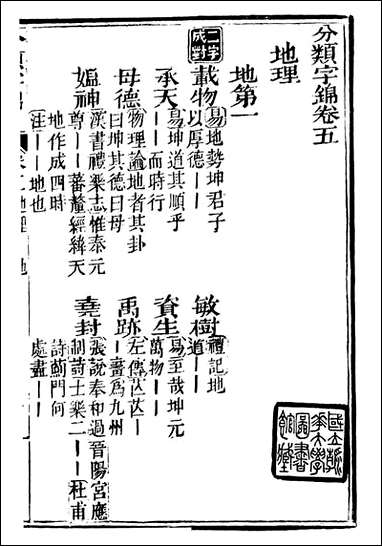 分類字錦卷五
地理
地第一
二字成對
載物
易地勢坤君子
以厚德丨丨
敏樹
禮記地
道丨丨
承天
易坤道其順乎
丨丨而時行
資生
易至哉坤元
萬物丨丨
母德
物理論地者其卦
曰坤其德曰母
禹跡
左傳芒芒丨
丨畫爲九州
媼神
漢書禮樂志惟泰元
尊丨丨蕃釐經緯天
地作成四時
註丨丨地也
堯封
張說奉和過晉陽宮應
制詩士樂二丨丨杜甫
詩薊門何
處盡丨丨
國立
大學
圖書
館藏